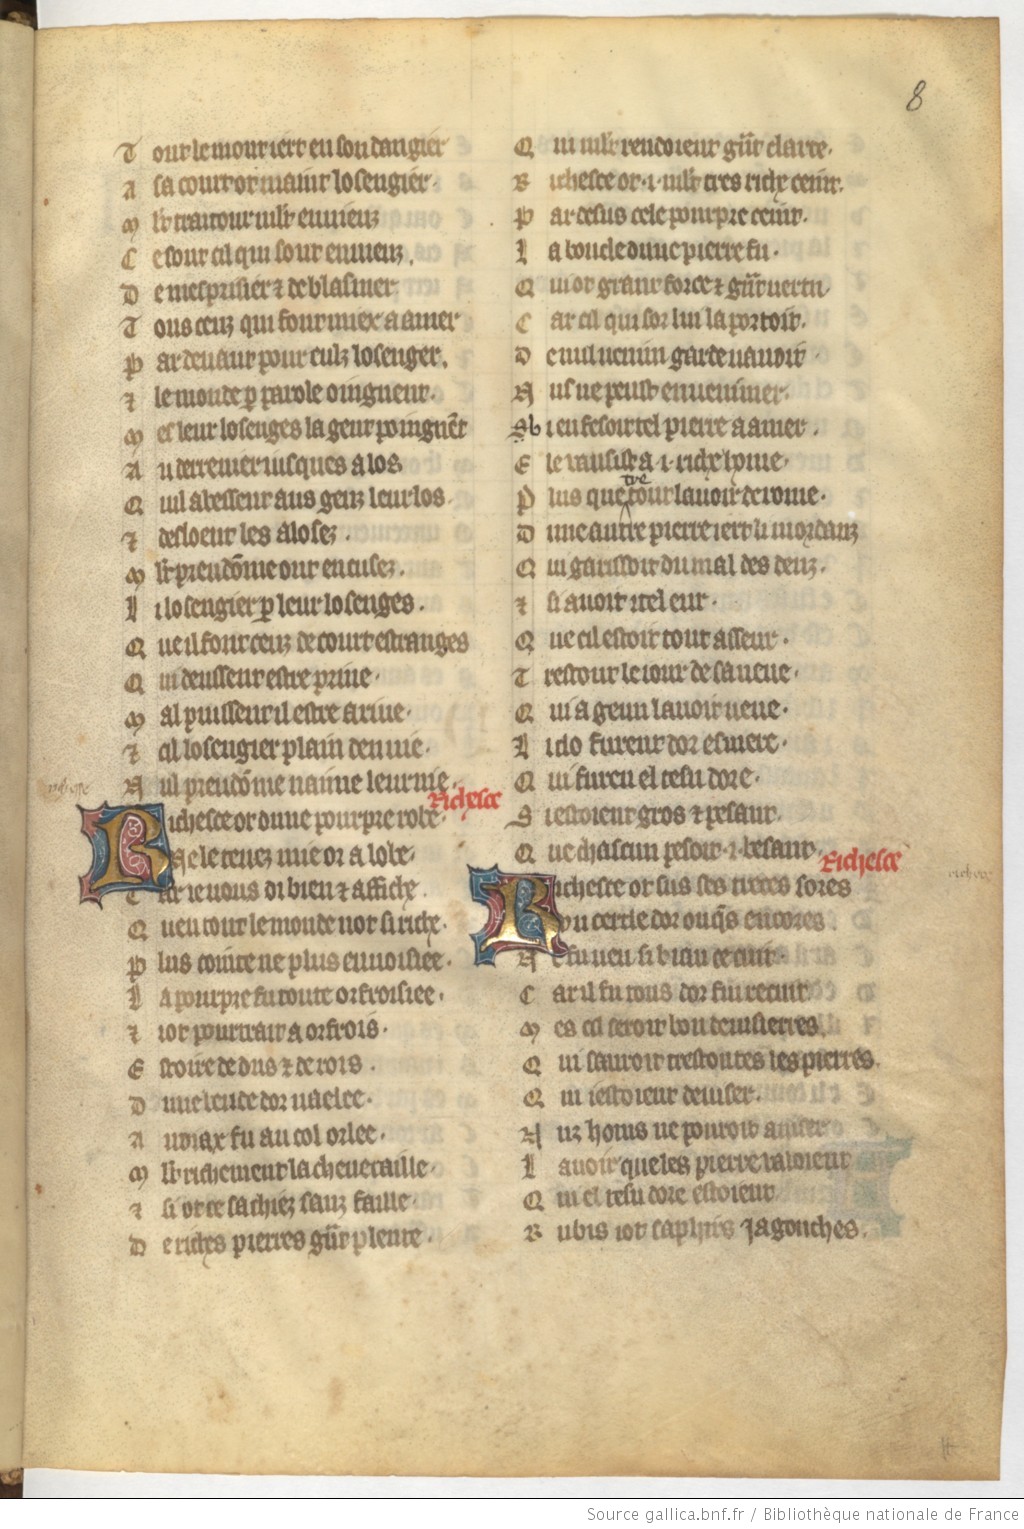 8
T out le mont iert en son dangier
A sa court ot maint losengier.
M lt traitour mlt enuieuz
C e sont cil qui sont enuieuz.
D e mesprisier ⁊ de blasmer
T ous ceuz qui font miex a amer
P ar deuant pour eulz losenger.
⁊ le monde p parole oingnent.
M es leur losenges la gent poingnẽt
A u derrenier iusques a los
Q uil abessent aus genz leur los.
⁊ desloent les alosez.
M lt preudõme ont encusez.
L i losengier p leur losenges.
Q ue il font ceuz de court estranges
Q ui deussent estre priue.
M al puissent il estre ariue.
⁊ cil losengier plain denuie.
N ul preudõme naime leur uie.
Richesce
R ichesce ot dune pourpre robe.
Ne le tenez mie or a lobe.
T ar ie uous di bien ⁊ affiche.
Q uen tout le monde not si riche.
P lus cointe ne plus enuoisiee.
L a pourpre fu toute orfroisiee.
⁊ iot pourtrait a orfrois.
E stoire de dus ⁊ de rois.
D une bende dor naelee.
A umax fu au col orlee.
M lt richement la cheuecaille.
⁊ si ot ce sachiez sanz faille.
D e riches pierres gñt plente.
Q ui mlt rendoient gñt clarte.
R ichesce ot .i. mlt tres riche ceint.
P ar desus cele pourpre ceint.
L a boucle dune pierre fu.
Q ui ot grant force ⁊ gñt uertu.
C ar cil qui sor lui la portoit.
D e nul uenin garde nauoit.
N us ne peust enuenimer.
Sb ien fesoit tel pierre a amer.
E le uausist a .i. riche home.
P lus que tre tout lauoir de rome.
D une autre pierre iert li mordanz
Q ui garissoit du mal des denz.
⁊ si auoit itel eur.
Q ue cil estoit tout asseur.
T restout le iour de sa ueue.
Q ui a geun lauoit ueue.
L i clo furent dor esmere.
Q ui furent el tesu dore.
S i estoient gros ⁊ pesant.
Q ue chascun pesoit .i. besant.
Richesce
R ichesce ot sus ses treces sores
Vn cercle dor onq̃s encores
N e fu ueu si biau ce cuit.
C ar il fu tous dor fin recuit.
M es cil seroit bon deuisierres.
Q ui sauroit trestoutes les pierres.
Q ui iestoient deuiser.
N uz homs ne pouroit amiser
L auoir queles pierre ualoient
Q ui el tesu dore estoient.
R ubis iot saphirs Jagonches.
Source gallica.bnf.fr / Bibliothèque nationale de France